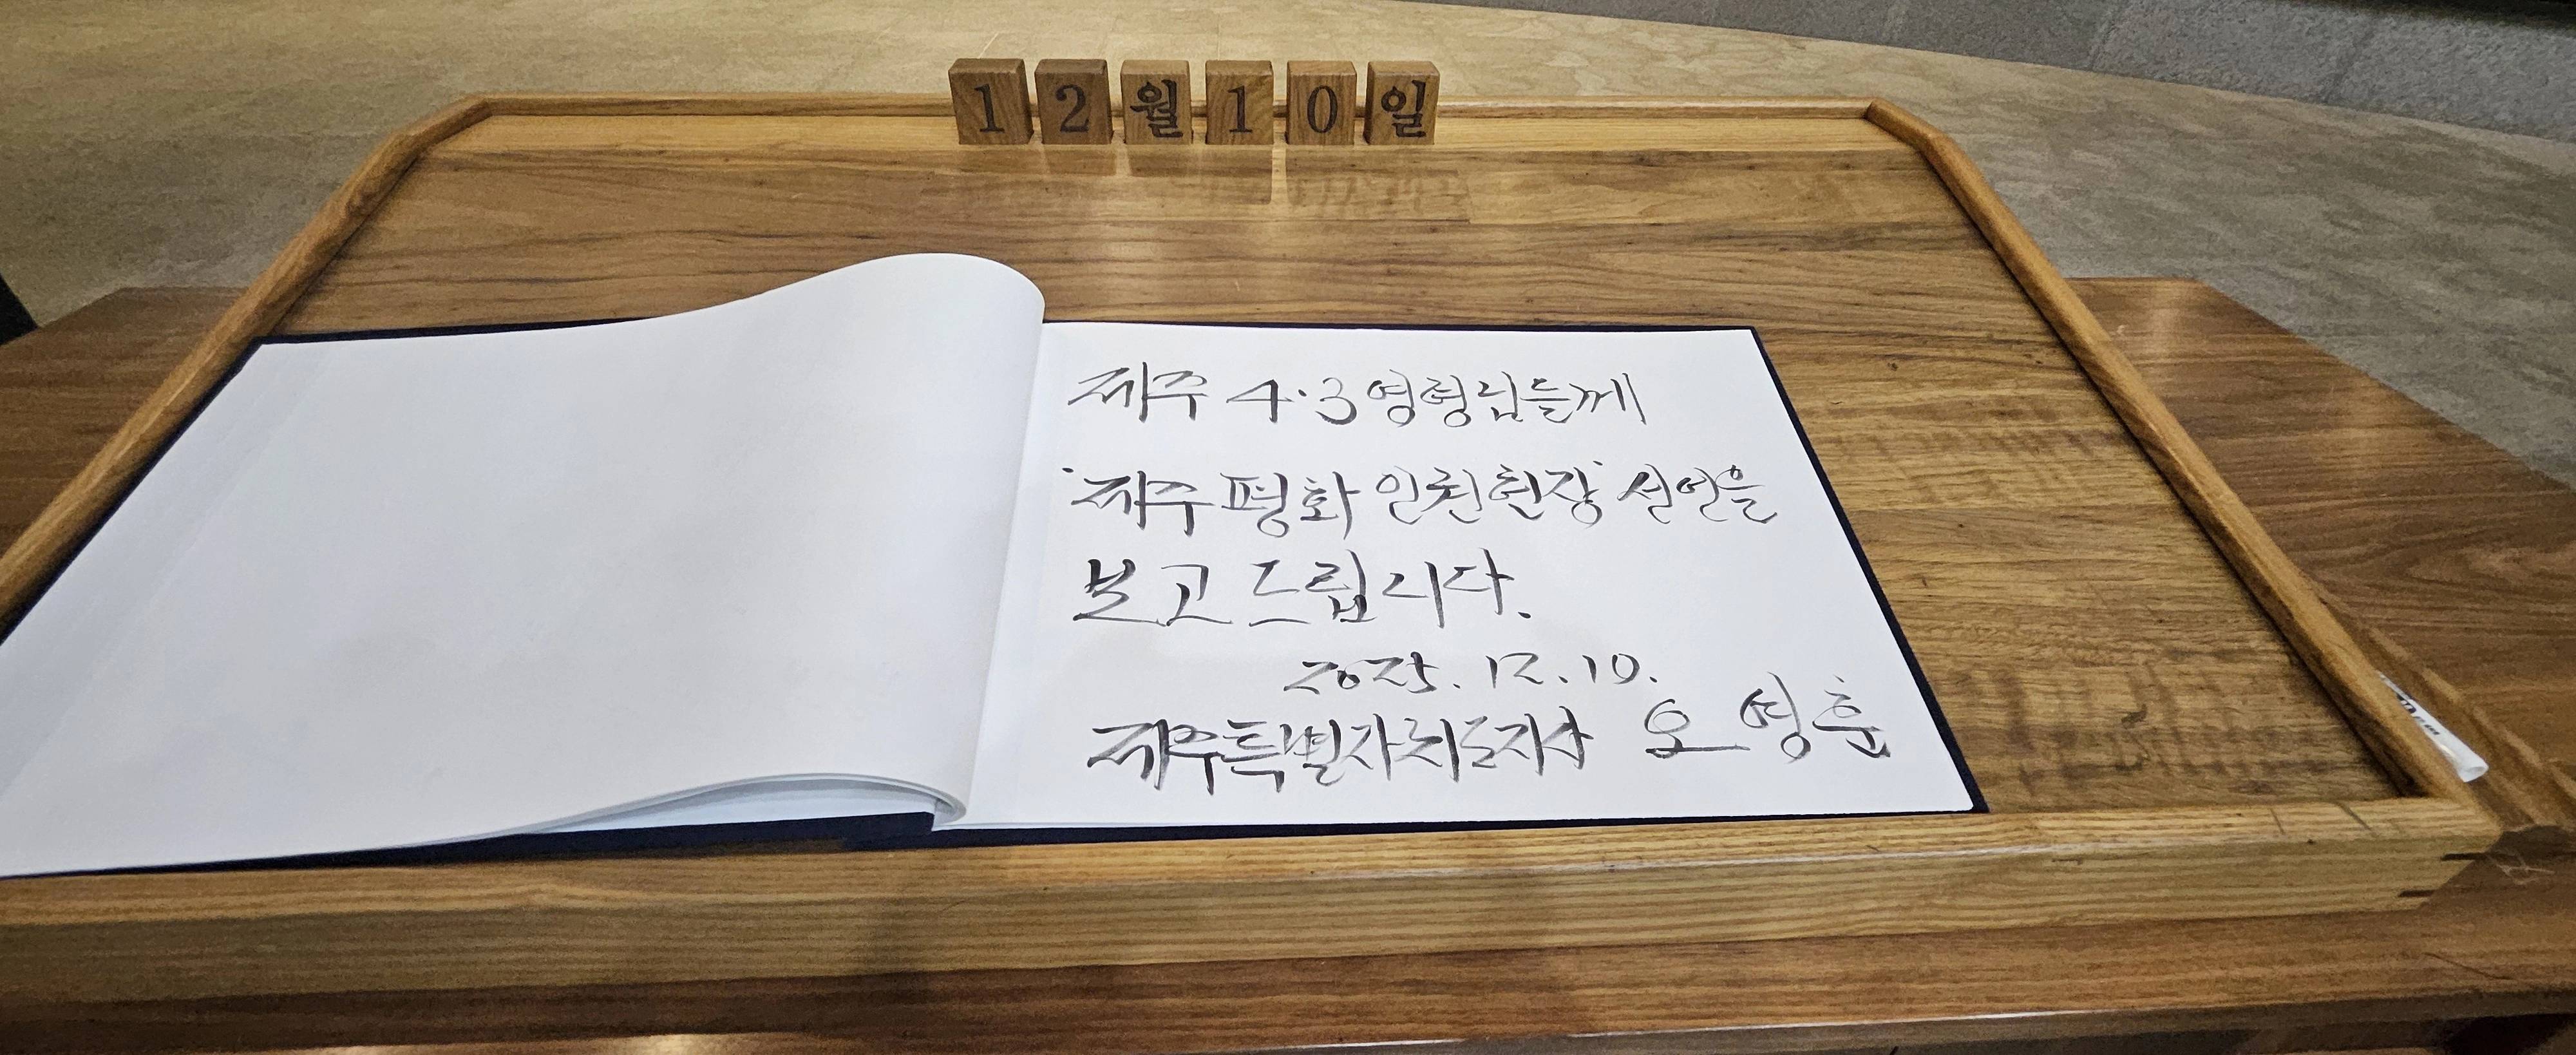 12월10일
제주 4·3 영령님들께
'제주평화인권헌장' 선언을
보고 드립니다.
2025. 12. 10.
제주특별자치도지사 오영훈